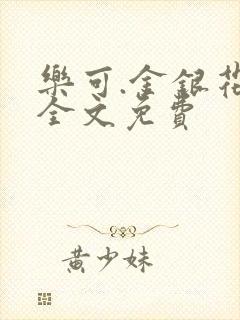 樂可.金銀花
全文免費
黃少妹